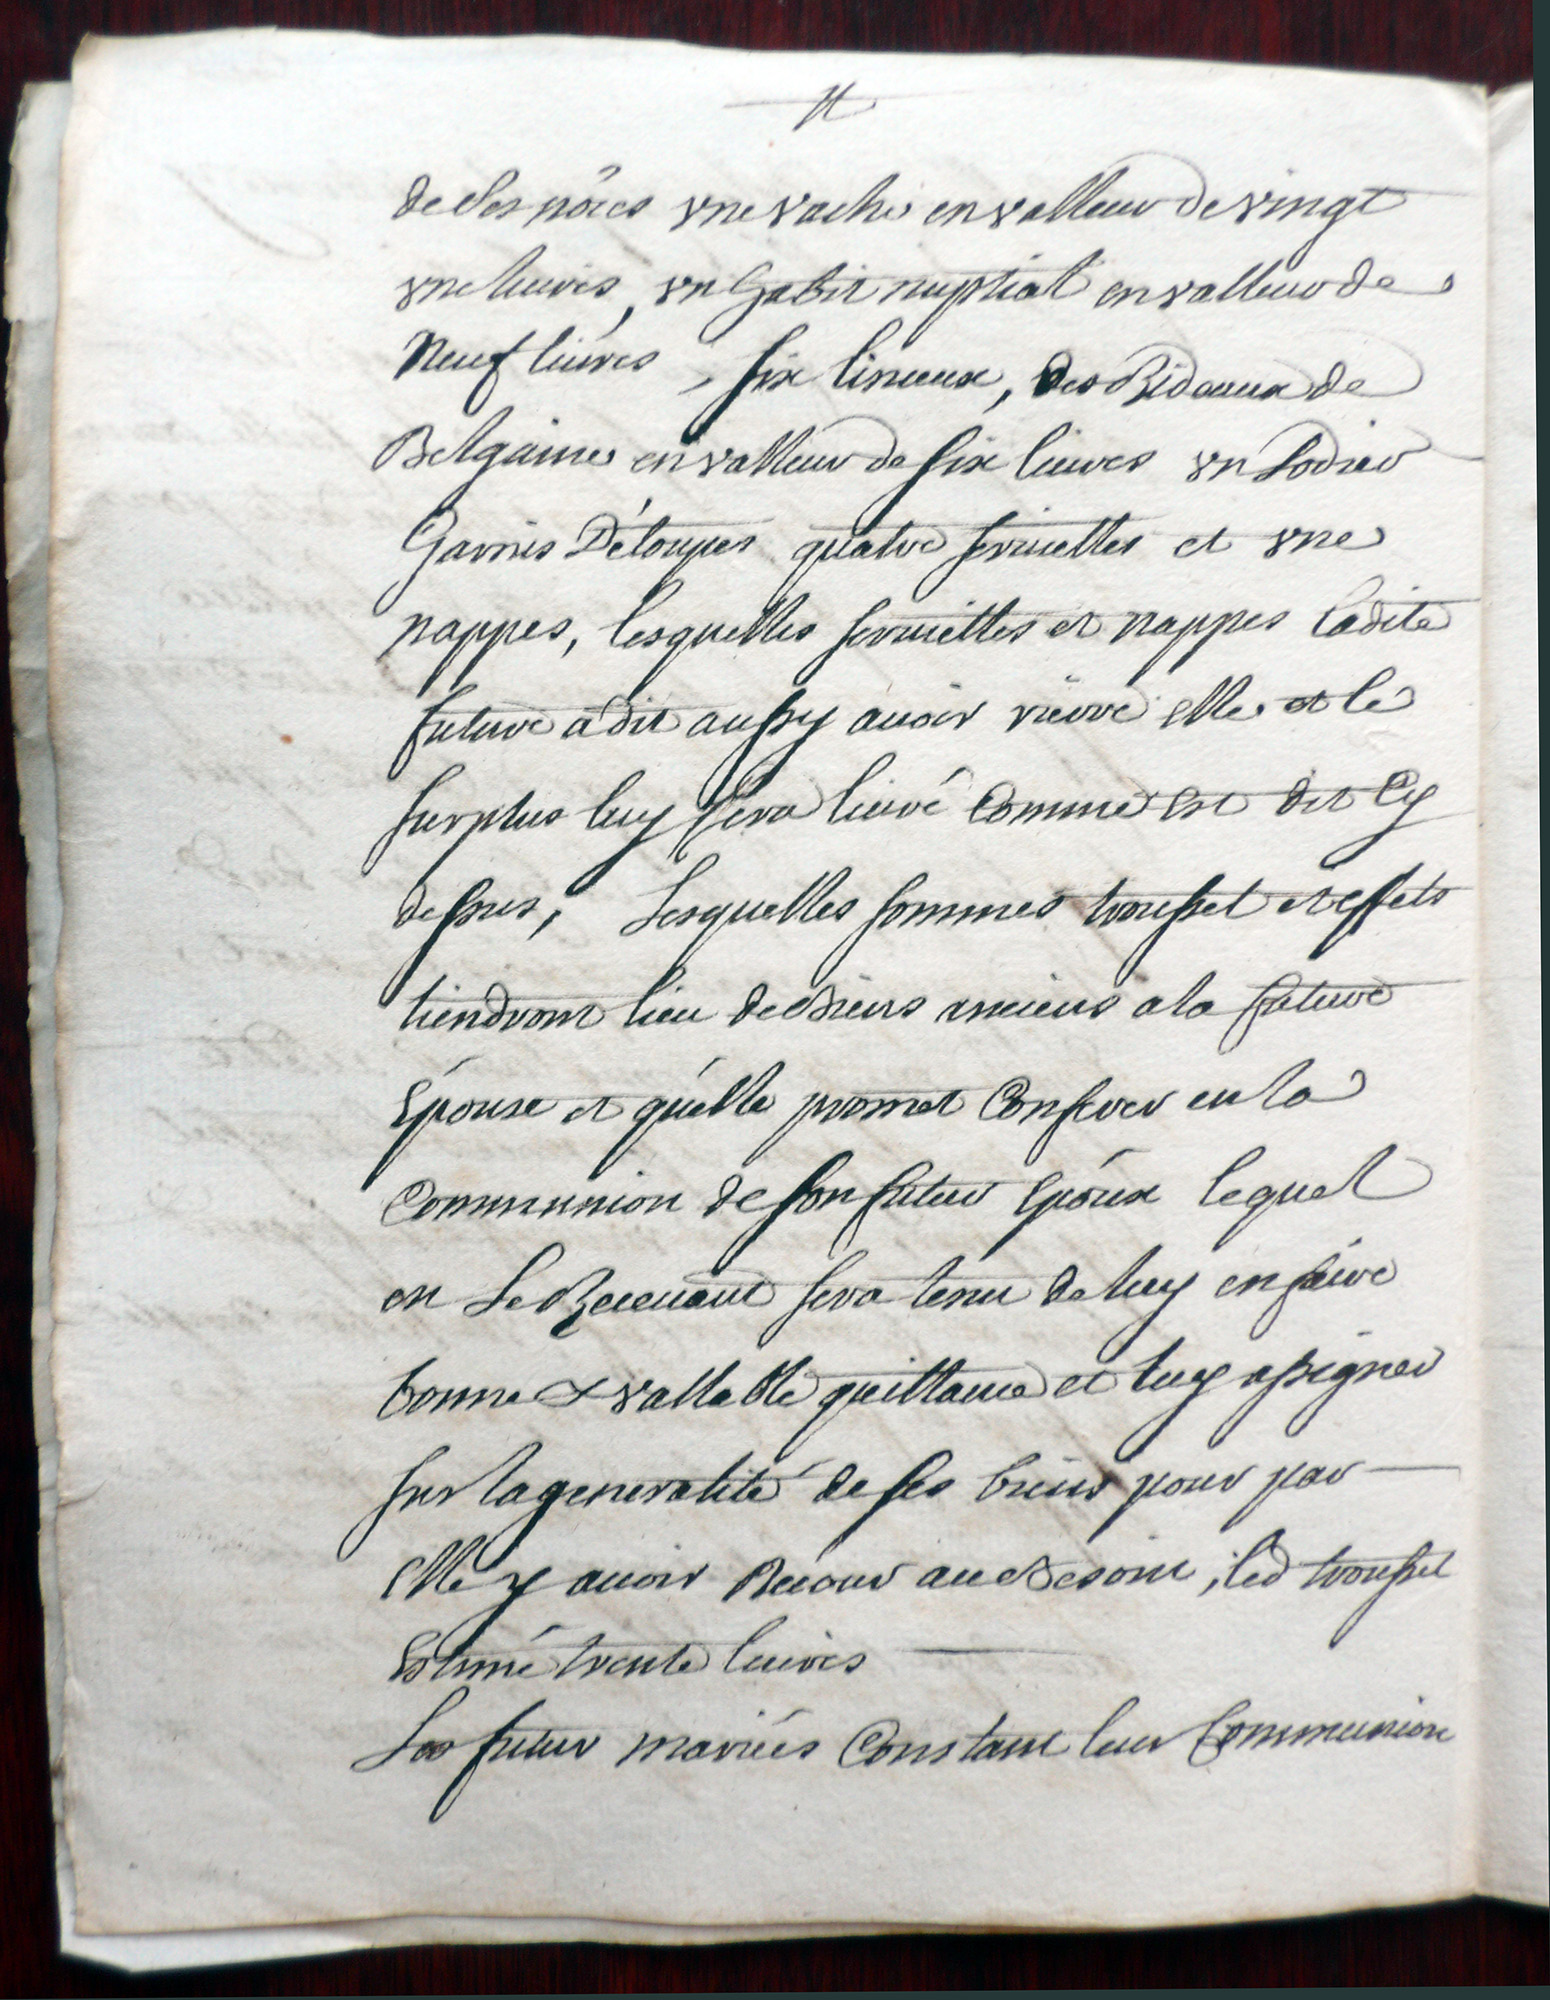 de ses nôces vne vache en valleur de vingt
vne liures, vn habit nuptial en valleur de
Neuf liures, six linceux, des Rideaux de
Belgaine en valleur de six liures vn Lodier
Garnis D'étoupes quatre seruiettes et vne
nappes, lesquelles seruiettes et nappes Ladite
future a dit aussy auoir rierre elle et le
surplus luy sera liuré Comme est dit Cy
dessus; Lesquelles sommes trousset et effets
tiendront lieu de Biens anciens a la future
Epouse et qu'elle promet Conferer en la
Communion de son futur Epoux lequel
en Le Receuant sera tenu de luy en faire
bonne & vallable quittance et luy assigner
sur la generalité de ses biens pour par
Elle y auoir Recour au Besoin, led trousset
Estimé trente liures
Les futur mariés Constant leur Communion